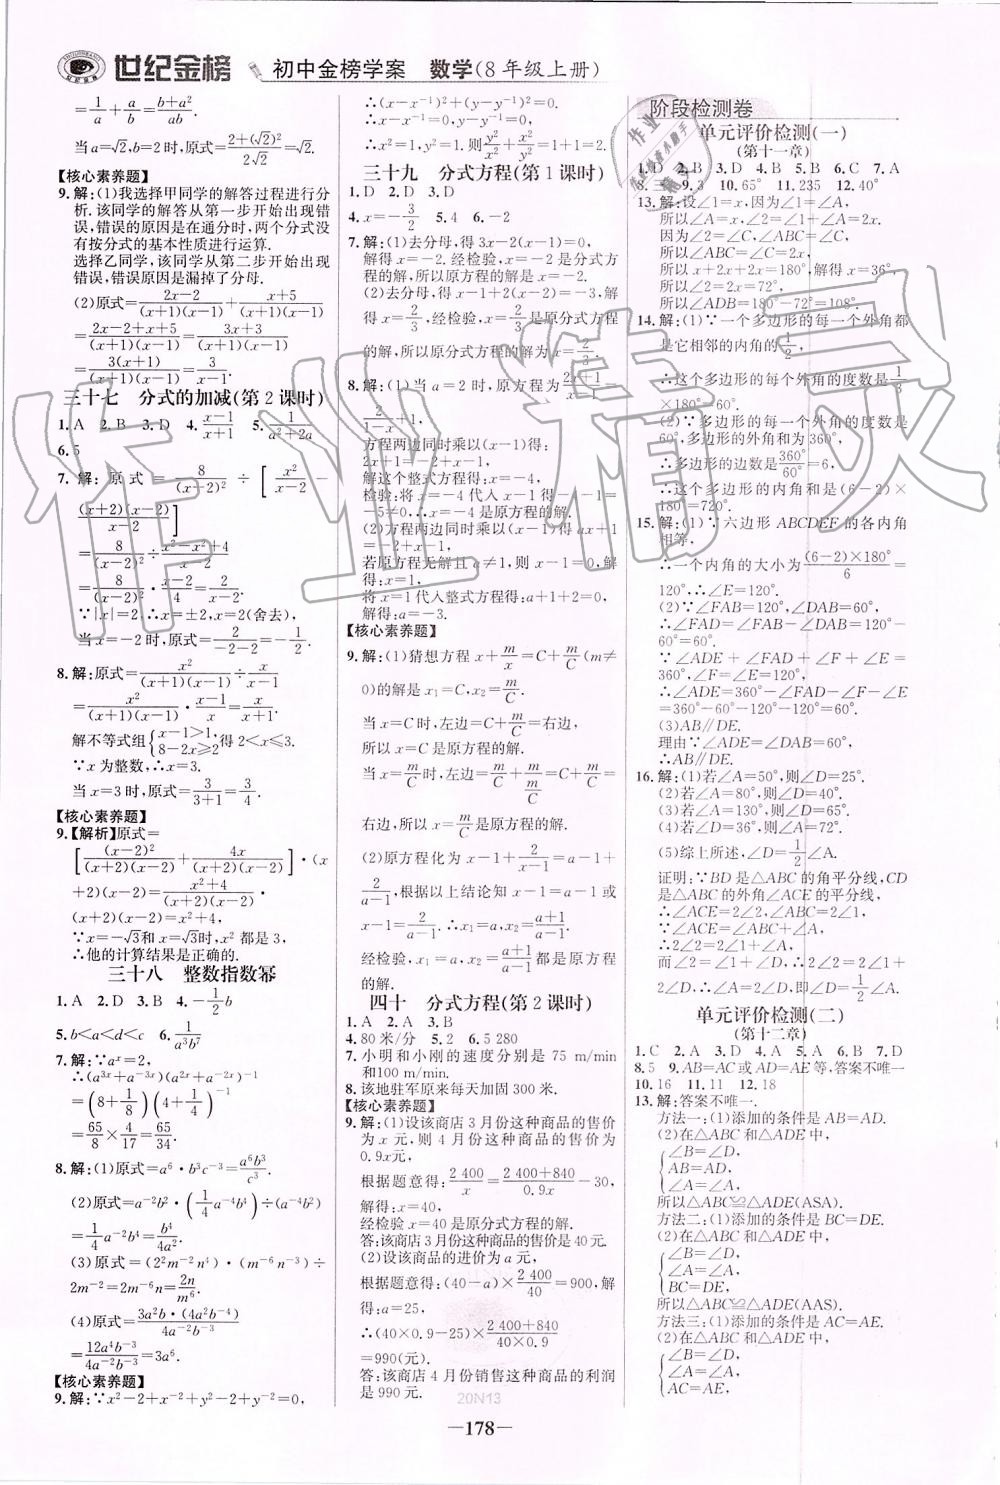 世纪金榜
初中金榜学案 数学(8年级上册)
=1/a+a/b=(b+a²)/ab.
当a=√2,b=2时,原式=(2+(√2)²)/(2√2)=√2.
【核心素养题】
9.解:(1)我选择甲同学的解答过程进行分
析.该同学的解答从第一步开始出现错
误,错误的原因是在通分时,两个分式没
有按分式的基本性质进行运算.
选择乙同学,该同学从第二步开始出现
错误,错误原因是漏掉了分母.
(2)原式=(2x-2)/((x+1)(x-1))+(x+5)/((x+1)(x-1))
=(2x-2+x+5)/((x+1)(x-1))=(3x+3)/((x+1)(x-1))
=3(x+1)/((x+1)(x-1))=3/(x-1).
三十七 分式的加减(第2课时)
1.A 2.B 3.D 4.(x-1)/(x+1) 5.1/(a²+2a)
6.5
7.解:原式=8/(x-2)²÷[x²/(x-2)-
(x+2)(x-2)/(x-2)]
=8/(x-2)²÷(x²-x²+4)/(x-2)
=8/(x-2)²·(x-2)/4=2/(x-2).
∵|x|=2,∴x=±2,x=2(舍去),
当x=-2时,原式=2/(-2-2)=-1/2.
8.解:原式=x²/((x+1)(x-1))÷x/(x-1)
=x²/((x+1)(x-1))·(x-1)/x=x/(x+1).
解不等式组{x-1>1, 8-2x≥2,得2<x≤3.
∵x为整数,∴x=3.
当x=3时,原式=3/(3+1)=3/4.
【核心素养题】
9.【解析】原式=
[(x-2)²/((x+2)(x-2))+4x/((x+2)(x-2))]·(x
+2)(x-2)=(x²+4)/((x+2)(x-2))·
(x+2)(x-2)=x²+4,
∵x=-√3和x=√3时,x²都是3,
∴他的计算结果是正确的.
三十八 整数指数幂
1.A 2.D 3.B 4.-1/2b
5.b<a<d<c 6.1/(a³b⁷)
7.解:∵aˣ=2,
∴(a³ˣ+a⁻³ˣ)(a²ˣ+a⁻²ˣ)
=(8+1/8)(4+1/4)
=65/8×4/17=65/34.
8.解:(1)原式=a⁶·b³c⁻³=a⁶b³/c³.
(2)原式=a⁻²b²·(1/4a⁻⁴b⁴)÷(a⁻⁴b²)
=1/4a⁻²b⁴=b⁴/4a².
(3)原式=(2²m⁻²n⁴)·(2⁻¹m⁻⁶n⁻³)÷
2m⁻²=2m⁻⁸n÷2m⁻²=m⁻⁶n=
(4)原式=3a²b·(4a²b⁻⁴)/(4a⁻²b⁻³)
=12a⁴b⁻³/(4a⁻²b⁻³)=3a⁶.
【核心素养题】
9.∵x²-2+x⁻²+y²-2+y⁻²=0,
∴(x-x⁻¹)²+(y-y⁻¹)²=0.
∴x²=1,y²=1.原式=y²/x²+x²/y²=1+1=2.
三十九 分式方程(第1课时)
1.D 2.D 3.C
4.x=-3/2 5.4 6.-2
7.解:(1)去分母,得3x-2(x-1)=0,
解得x=-2.经检验,x=-2是分式方
程的解,所以原方程的解为x=-2.
(2)去分母,得x-1+2(x-2)=-3,解
得x=2/3,经检验,x=2/3是原分式方程
的解,所以原分式方程的解为x=2/3.
8.解:(1)当a=2时,原方程为(2x+1)/(x-1)-
2/(1-x)=1,
方程两边同时乘以(x-1)得:
2x+1=-2+x-1,
解这个整式方程得:x=-4,
检验:将x=-4代入x-1=-4-1=
-5≠0,∴x=-4是原方程的解.
(2)方程两边同时乘以(x-1)得ax+1
+2=x-1,
若原方程无解且a≠1,则x-1=0,解
得:x=1,
将x=1代入整式方程得:a+1+2=0,
解得:a=-3.
【核心素养题】
9.解:(1)猜想方程x+m/x=C+m/C(m≠
0)的解是x₁=C,x₂=m/C.
当x=C时,左边=C+m/C=右边,
所以x=C是原方程的解.
当x=m/C时,左边=C+m/C=
右边,所以x=m/C是原方程的解.
(2)原方程化为x-1+2/(x-1)=a-1+
2/(a-1),根据以上结论知x-1=a-1或
x-1=2/(a-1).∴x₁=a,x₂=(a+1)/(a-1).
经检验,x₁=a,x₂=(a+1)/(a-1)都是原方程
的解.
四十 分式方程(第2课时)
1.A 2.A 3.B
4.80米/分 5.2 6.5 280
7.小明和小刚的速度分别是75 m/min
和100 m/min.
8.该地驻军原来每天加固300米.
【核心素养题】
9.解:(1)设该商店3月份这种商品的售价
为x元.则4月份这种商品的售价为
0.9x元.
根据题意得:2 400/x=(2 400+840)/0.9x-30,
解得:x=40,
经检验x=40是原分式方程的解.
答:该商店3月份这种商品的售价是40元.
(2)设该商品的进价为a元,
根据题意得:(40-a)×2 400/40=900,解
得:a=25,
∴(40×0.9-25)×(2 400+840)/(40×0.9)
=990(元).
答:该商店4月份销售这种商品的利润
是990元.
20N13
阶段检测卷
单元评价检测(一)
(第十一章)
1.D 2.B 3.D 4.C 5.B 6.C 7.A
8.三 9.3 10.65° 11.235 12.40°
13.解:设∠1=x,因为∠1=∠A,
所以∠A=x,∠2=∠1+∠A=2x.
因为∠2=∠C,∠ABC=∠C,
所以∠ABC=∠C=2x,
所以x+2x+2x=180°,解得x=36°,
所以∠ADB=180°-72°=108°.
14.解:(1)∵一个多边形的每一个外角都
是它相邻的内角的1/2,
∴这个多边形的每个外角的度数是1/3
×180°=60°.
(2)∵多边形的每一个外角的度数是
60°,多边形的外角和为360°,
∴多边形的边数是360°/60°=6,
∴这个多边形的内角和是(6-2)×
180°=720°.
15.解:(1)∵六边形ABCDEF的各内角
相等,
∴一个内角的大小为(6-2)×180°/6=
120°,∴∠E=120°.
(2)∵∠FAB=120°,∠DAB=60°,
∴∠FAD=∠FAB-∠DAB=120°-
60°=60°.
∵∠ADE+∠FAD+∠F+∠E=
360°,
∴∠ADE=360°-∠FAD-∠F-∠E=
360°-60°-120°-120°=60°.
(3)AB∥DE.
理由∵∠ADE=∠DAB=60°,
∴AB∥DE.
16.解:(1)若∠A=50°,则∠D=25°.
(2)若∠A=80°,则∠D=40°.
(3)若∠A=130°,则∠D=65°.
(4)若∠D=36°,则∠A=72°.
(5)综上所述,∠D=1/2∠A.
证明:∵BD是△ABC的角平分线,CD
是△ABC的外角∠ACE的平分线,
∴∠ACE=2∠2,∠ABC=2∠1,
∵∠ACE=∠ABC+∠A,
∴2∠2=2∠1+∠A,
而∠2=∠1+∠D,
∴2∠2=2∠1+2∠D,
∴∠A=2∠D,即∠D=1/2∠A.
单元评价检测(二)
(第十二章)
1.C 2.A 3.D 4.A 5.A 6.B 7.D
8.5 9.AB=AC或AD=AE等,答案不唯一
10.16 11.11 12.18
13.解:答案不唯一.
方法一:(1)添加的条件是AB=AD.
(2)在△ABC和△ADE中,
{∠B=∠D,
AB=AD,
∠A=∠A,
所以△ABC≌△ADE(ASA).
方法二:(1)添加的条件是BC=DE.
(2)在△ABC和△ADE中,
{∠B=∠D,
∠A=∠A,
BC=DE,
所以△ABC≌△ADE(AAS).
方法三:(1)添加的条件是AC=AE.
(2)在△ABC和△ADE中,
{∠B=∠D,
∠A=∠A,
AC=AE,
—178—
作业精灵